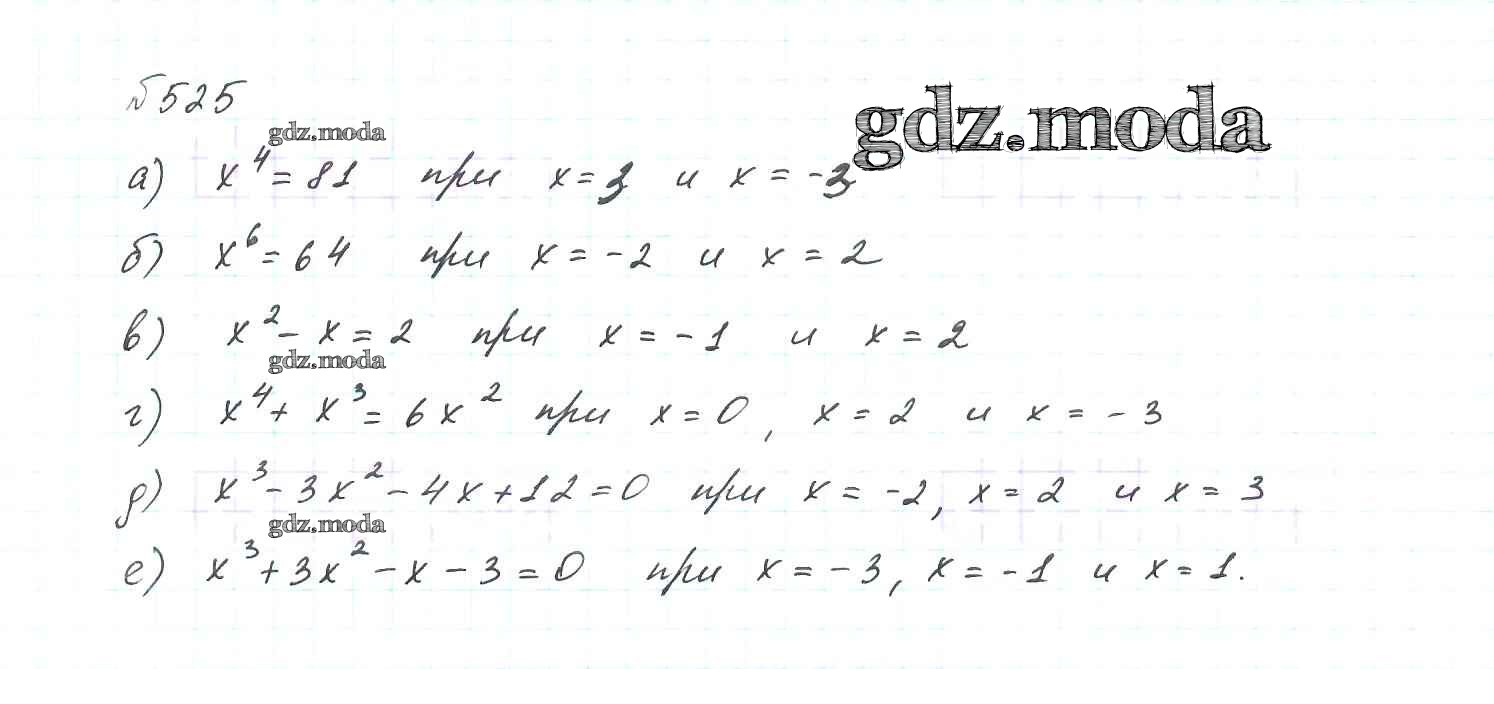 №525
gdz.moda
gdz.moda
а) x⁴ = 81 при x = 3 и x = -3
б) x⁶ = 64 при x = -2 и x = 2
в) x² - x = 2 при x = -1 и x = 2
gdz.moda
г) x⁴ + x³ = 6x² при x = 0, x = 2 и x = -3
д) x³ - 3x² - 4x + 12 = 0 при x = -2, x = 2 и x = 3
gdz.moda
е) x³ + 3x² - x - 3 = 0 при x = -3, x = -1 и x = 1.